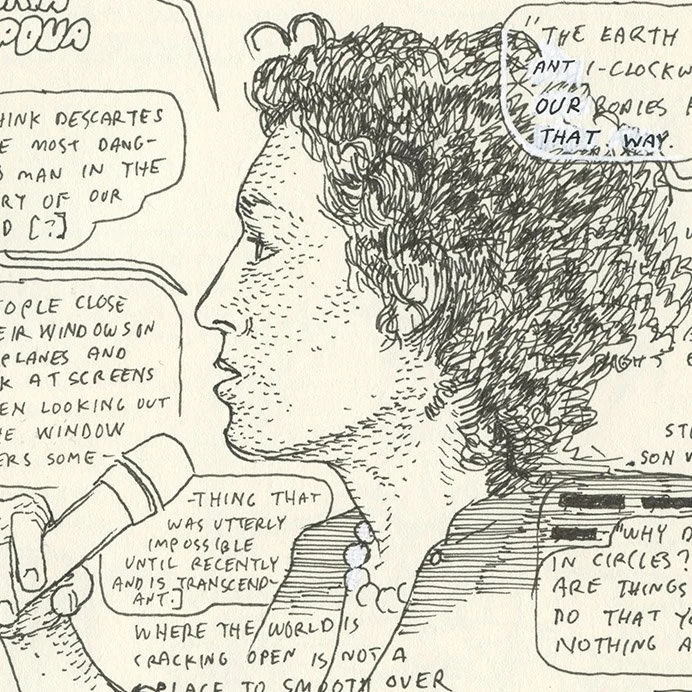 POVA
HINK DESCARTES
E MOST DANG-
S MAN IN THE
RY OF OUR
D [?]
EOPLE CLOSE
EIR WINDOWS ON
PLANES AND
K AT SCREENS
EN LOOKING OUT
HE WINDOW
ERS SOME-
-THING THAT
WAS UTTERLY
IMPOSSIBLE
UNTIL RECENTLY
AND IS TRANSCEND-
ANT.]
WHERE THE WORLD IS
CRACKING OPEN IS NOT A
PLACE TO SMOOTH OVER
"THE EARTH
ANTI-CLOCKW
OUR BODIES
THAT WAY.
ST
SON W
"WHY D
IN CIRCLES?
ARE THINGS
DO THAT YO
NOTHING A